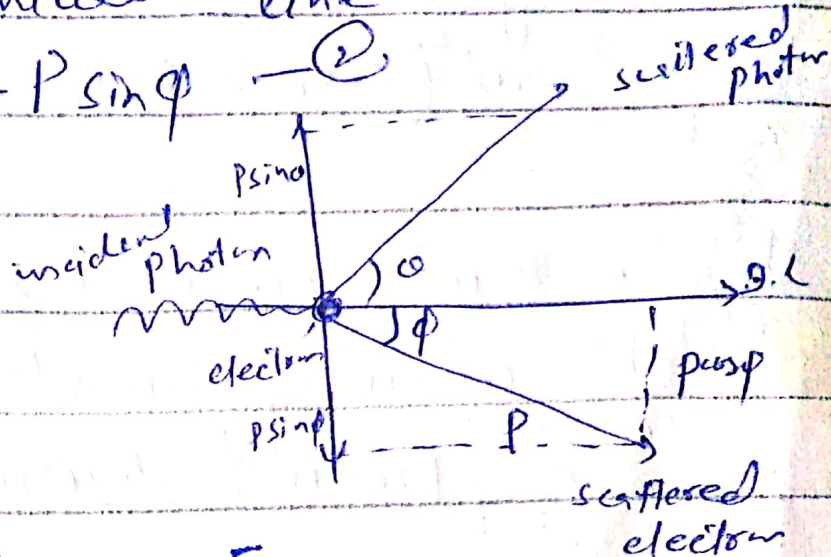 - P sinφ — ②
scattered
photon
psinθ
incident
photon
θ
φ
electron
pcosφ
psinφ
P
scattered
electron